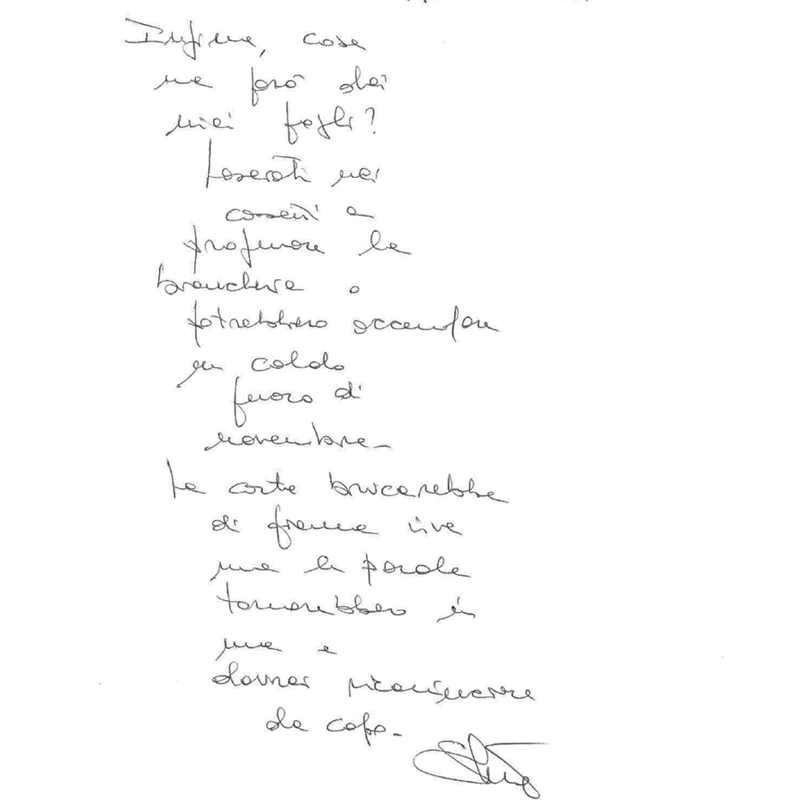 Infine, cosa
ne farò dei
miei fogli?
Lasciarli nei
cassetti a
profumare la
biancheria o
potrebbero accendere
un caldo
fuoco di
novembre_
La carta brucerebbe
di fiamma viva
ma le parole
tornerebbero in
me e
dovrei ricominciare
da capo_